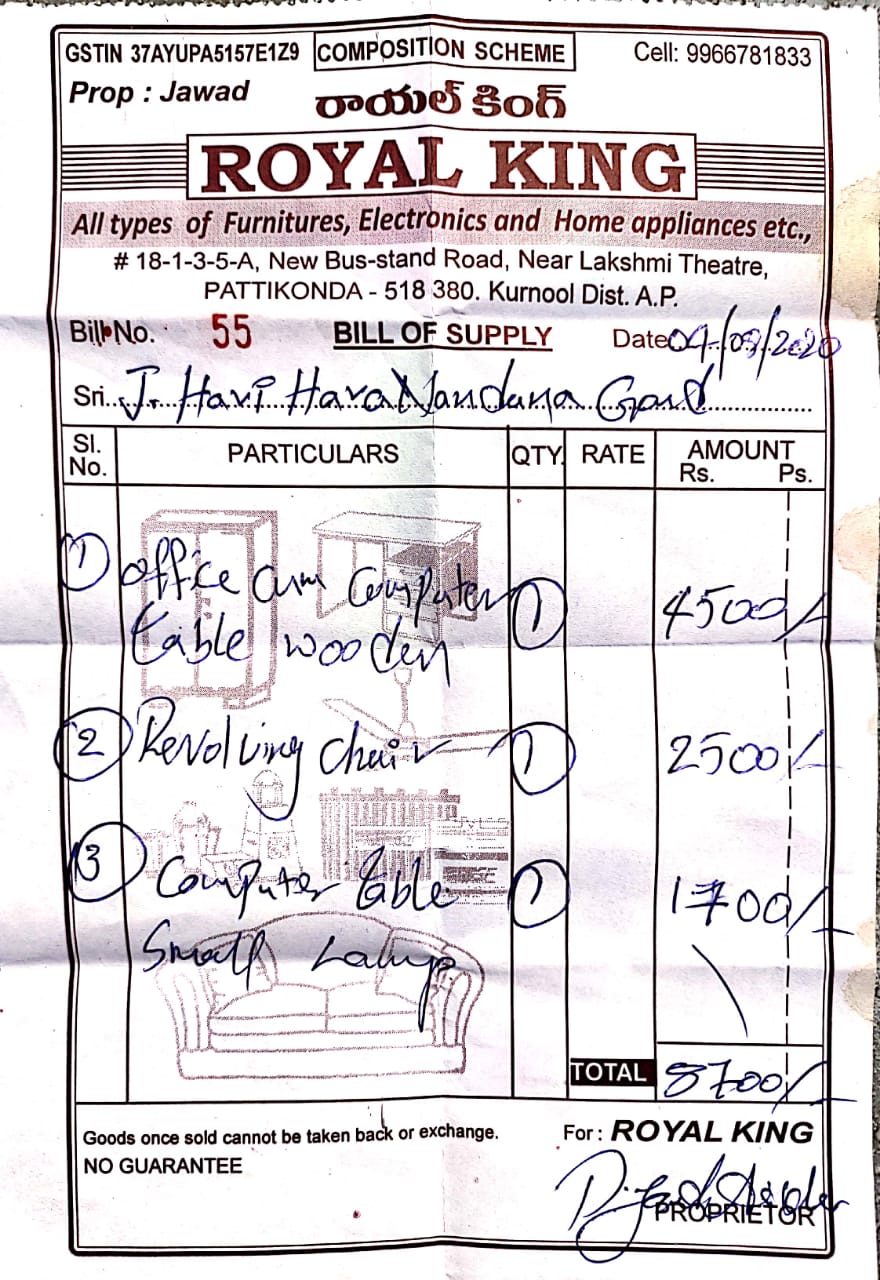 GSTIN 37AYUPA5157E1Z9 COMPOSITION SCHEME Cell: 9966781833
Prop : Jawad
రాయల్ కింగ్
ROYAL KING
All types of Furnitures, Electronics and Home appliances etc.,
# 18-1-3-5-A, New Bus-stand Road, Near Lakshmi Theatre,
PATTIKONDA - 518 380. Kurnool Dist. A.P.
Bill No. 55 BILL OF SUPPLY Date 04/09/2020
Sri. J. Hari Hara Nandana Goud
Sl. No. PARTICULARS QTY. RATE AMOUNT Rs. Ps.
1 Office cum Computer 1 4500/-
table wooden
2 Revolving chair 1 2500/-
3 Computer table 1 1700/-
Small Lamp
TOTAL 8700/-
Goods once sold cannot be taken back or exchange. For : ROYAL KING
NO GUARANTEE
PROPRIETOR